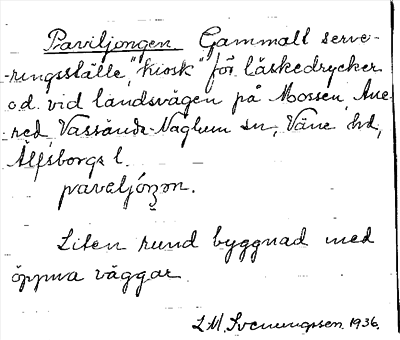 Paviljongen Gammalt serve-
-ringsställe, "kiosk" för läskedrycker
o.d. vid landsvägen på Mossen, Ane-
red, Vassända-Naglum sn, Väne hd,
Älfsborgs l.
paveljóŋən.
Liten rund byggnad med
öppna väggar.
L.M. Svenungsson. 1936.